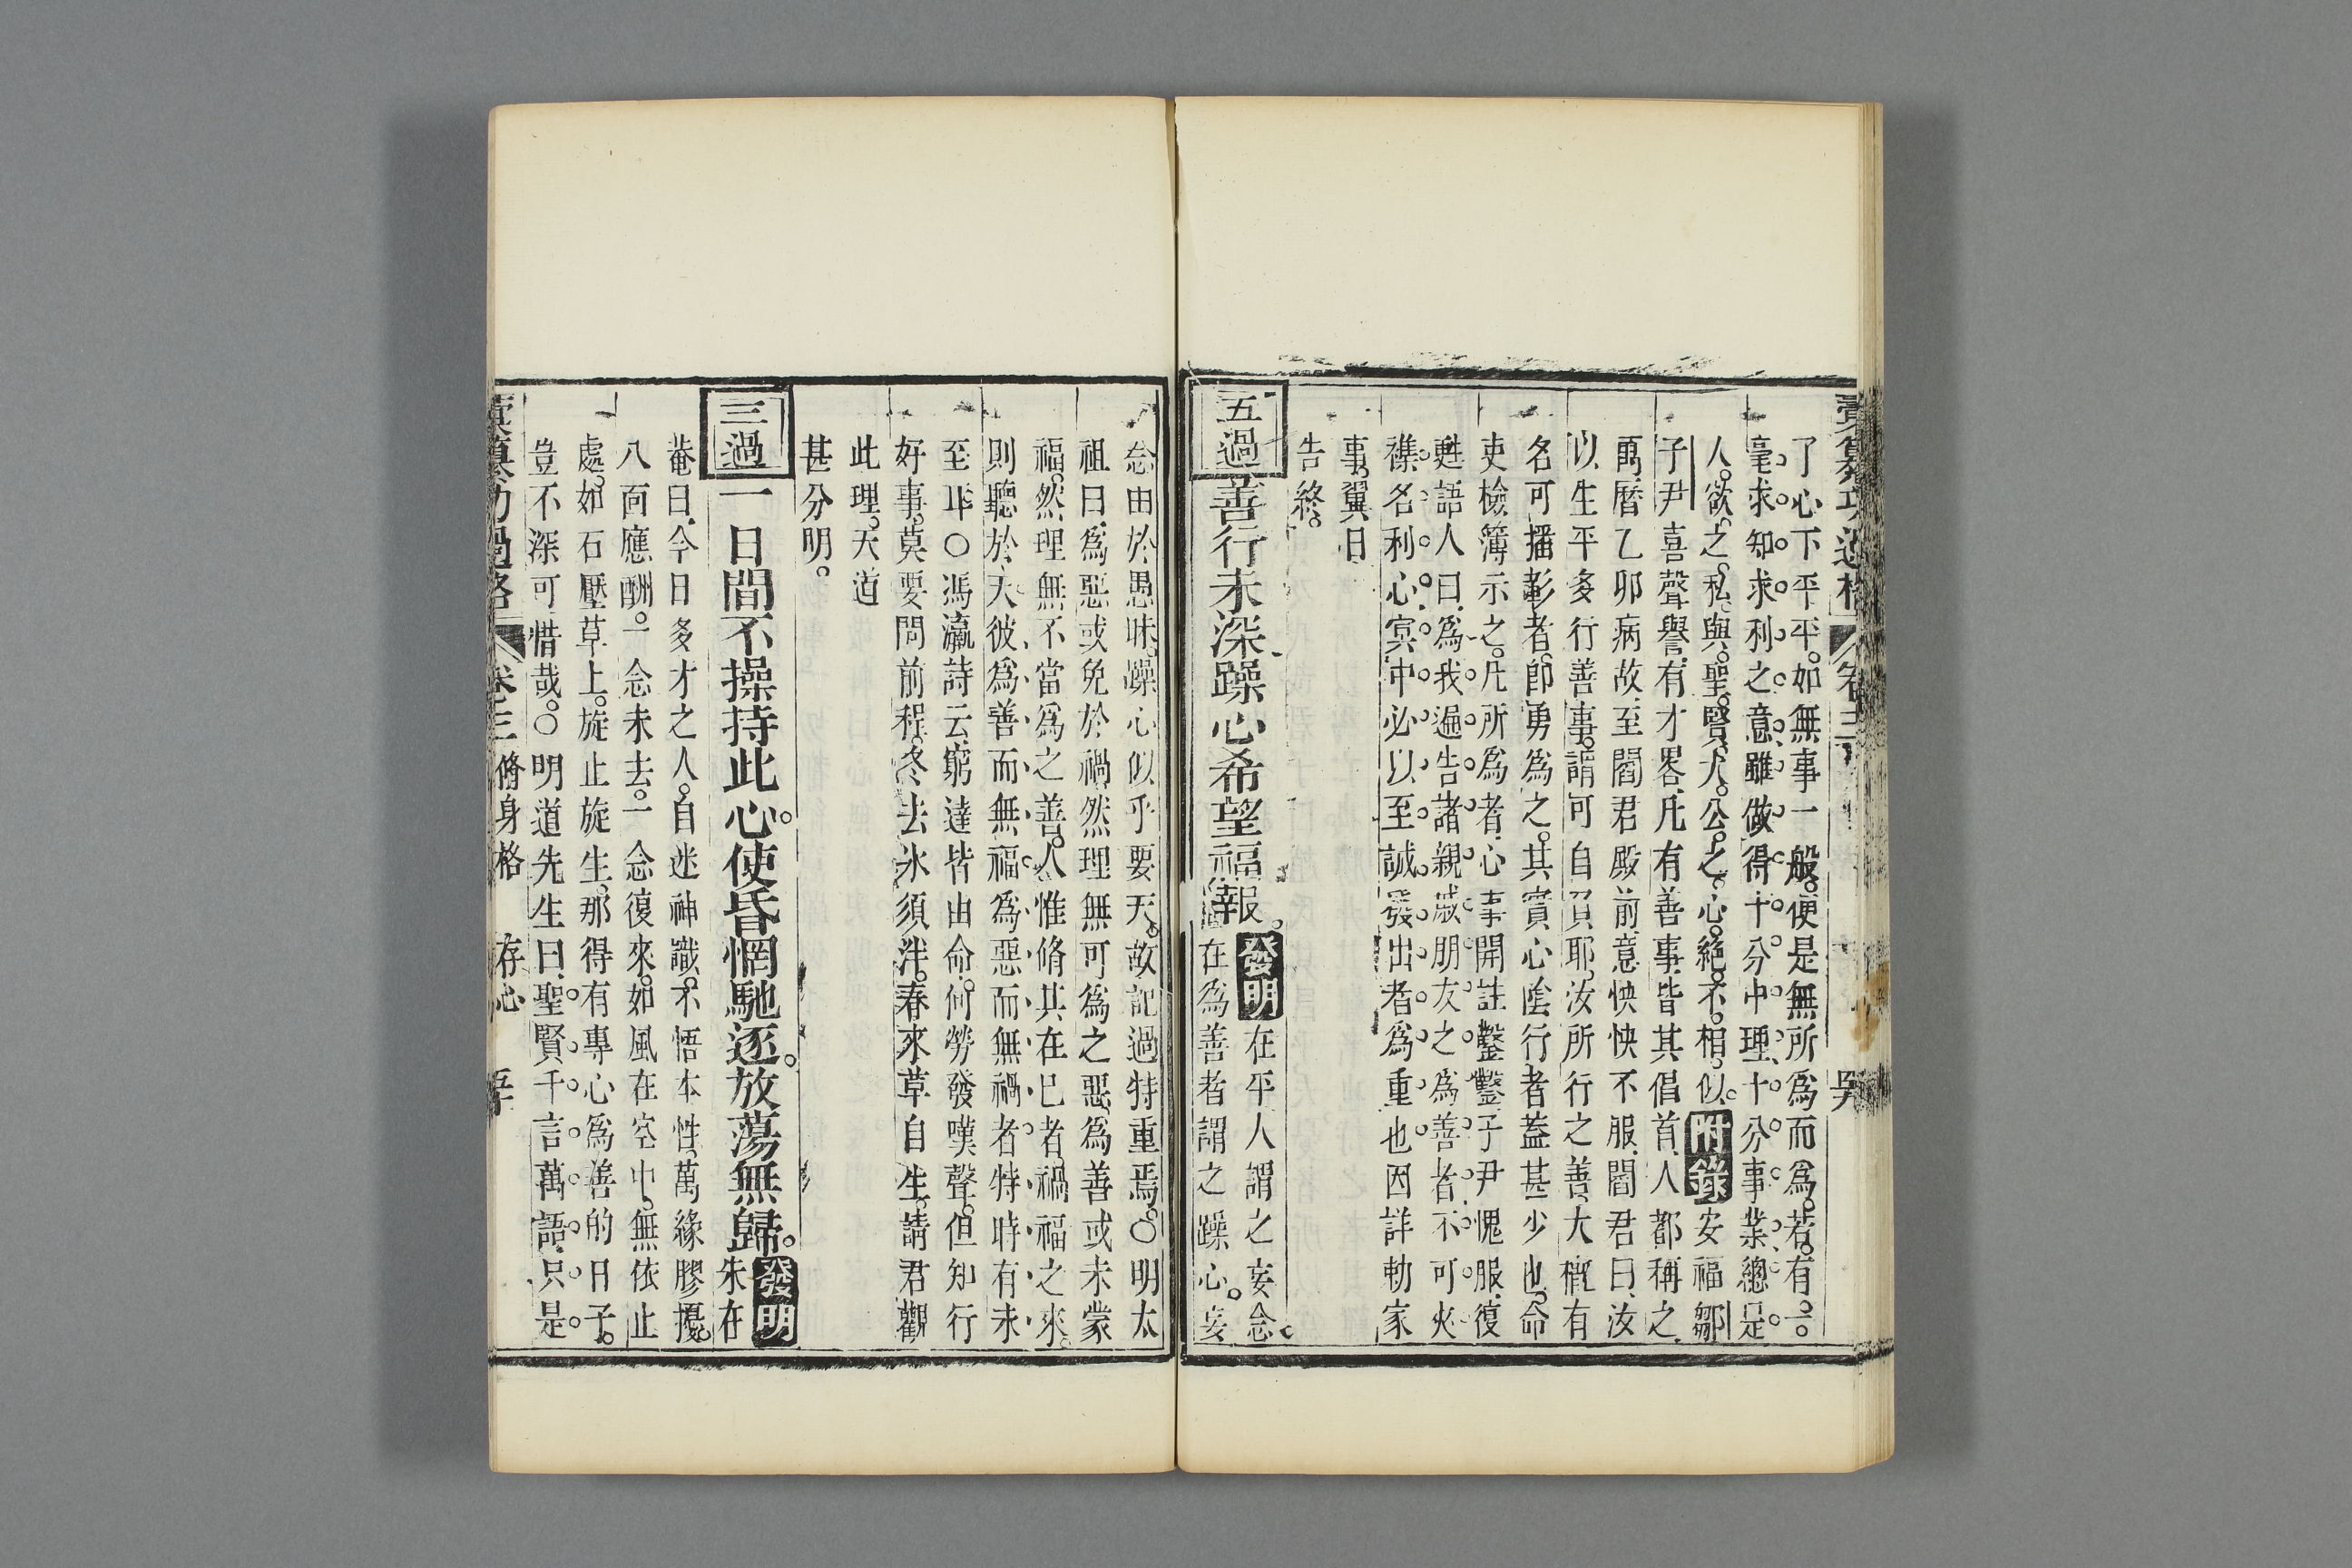 了心下平平。如無事一般。便是無所爲而爲。若有一
毫求知求利之意。雖做得十分中理。十分事業。總是
人欲之私。與聖賢大公之心。絕不相似。附錄安福鄒
子尹喜聲譽。有才畧。凡有善事。皆其倡首。人都稱之。
萬曆乙卯病故。至閻君殿前。意怏怏不服。閻君曰。汝
以生平多行善事。謂可自負耶。汝所行之善。大槪有
名可播彰者。卽勇爲之。其實心陰行者蓋甚少也。命
吏檢簿示之。凡所爲者。心事開註鑿鑿。子尹愧服。復
甦語人曰。爲我遍告諸親戚朋友之爲善者。不可夾
襍名利心。冥中必以至誠發出者爲重也。因詳勅家
事。翼日
告終。
五過
善行未深躁心希望福報。
發明
在平人謂之妄念。
在爲善者謂之躁心。妄
念由於愚昧。躁心似乎要天。故記過特重焉。○明太
祖曰。爲惡或免於禍。然理無可爲之惡。爲善或未蒙
福。然理無不當爲之善。人惟脩其在已者。禍福之來。
則聽於天。彼爲善而無福。爲惡而無禍者。特時有未
至耳○馮瀛詩云。窮達皆由命。何勞發嘆聲。但知行
好事。莫要問前程。冬去氷須泮。春來草自生。請君觀
此理。天道
甚分明。
三過
一日間不操持此心。使昏惘馳逐。放蕩無歸。
發明
朱在
菴曰。今日多才之人。自迷神識。不悟本性。萬緣膠擾。
八面應酬。一念未去。一念復來。如風在空中。無依止
處。如石壓草上。旋止旋生。那得有專心爲善的日子。
豈不深可惜哉。○明道先生曰。聖賢千言萬語。只是
彙纂功過格 卷三 脩身格 存心